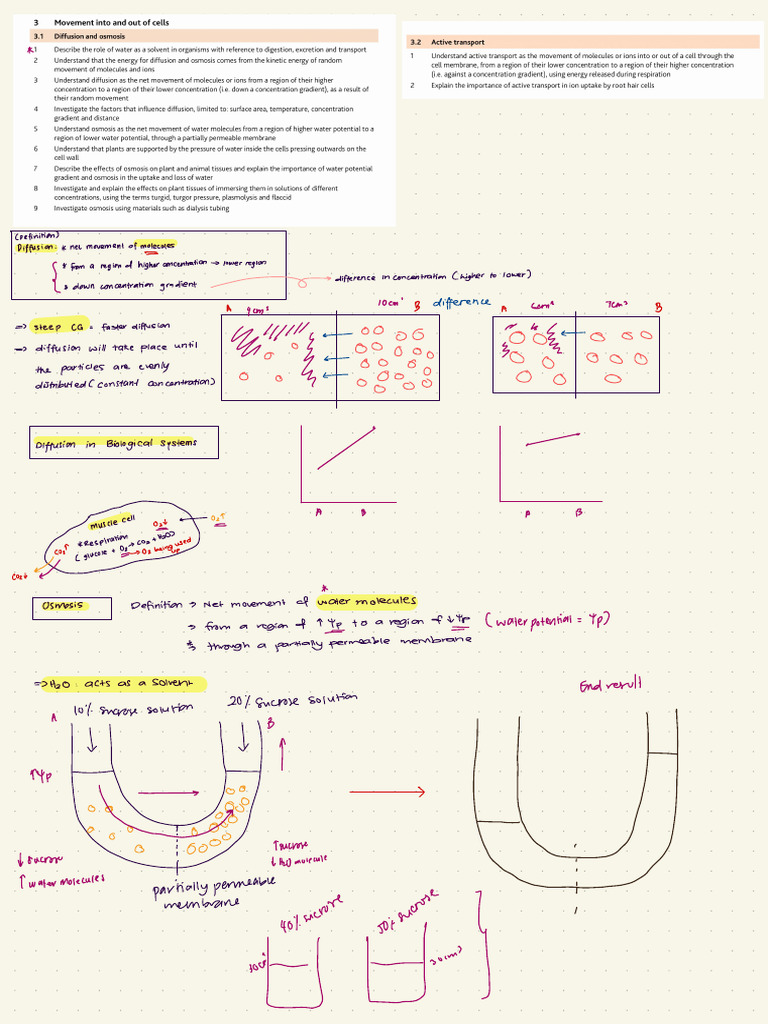 3 Movement into and out of cells
3.1 Diffusion and osmosis
*1 Describe the role of water as a solvent in organisms with reference to digestion, excretion and transport
2 Understand that the energy for diffusion and osmosis comes from the kinetic energy of random
movement of molecules and ions
3 Understand diffusion as the net movement of molecules or ions from a region of their higher
concentration to a region of their lower concentration (i.e. down a concentration gradient), as a result of
their random movement
4 Investigate the factors that influence diffusion, limited to: surface area, temperature, concentration
gradient and distance
5 Understand osmosis as the net movement of water molecules from a region of higher water potential to a
region of lower water potential, through a partially permeable membrane
6 Understand that plants are supported by the pressure of water inside the cells pressing outwards on the
cell wall
7 Describe the effects of osmosis on plant and animal tissues and explain the importance of water potential
gradient and osmosis in the uptake and loss of water
8 Investigate and explain the effects on plant tissues of immersing them in solutions of different
concentrations, using the terms turgid, turgor pressure, plasmolysis and flaccid
9 Investigate osmosis using materials such as dialysis tubing
3.2 Active transport
1 Understand active transport as the movement of molecules or ions into or out of a cell through the
cell membrane, from a region of their lower concentration to a region of their higher concentration
(i.e. against a concentration gradient), using energy released during respiration
2 Explain the importance of active transport in ion uptake by root hair cells
(Definition)
Diffusion: * net movement of molecules
* from a region of higher concentration → lower region
* down concentration gradient
difference in concentration (higher to lower)
⇒ steep CG = faster diffusion
→ diffusion will take place until
the particles are evenly
distributed (constant concentration)
A
B difference
A
7cm³
B
Diffusion in Biological Systems
A B
A B
muscle cell
O2↓
O2↑
*Respiration
(glucose + O2 → CO2 + H2O)
→ O2 being used up
CO2↑
CO2↓
Osmosis
Definition → Net movement of water molecules
*
→ from a region of ↑Ψp to a region of ↓Ψp (water potential = Ψp)
→ through a partially permeable membrane
⇒ H2O: acts as a solvent
End result
A 10% sucrose solution
20% sucrose solution
B
↑Ψp
↓ sucrose
↑ water molecules
↑ sucrose
↓ H2O molecule
partially permeable
membrane
40% sucrose